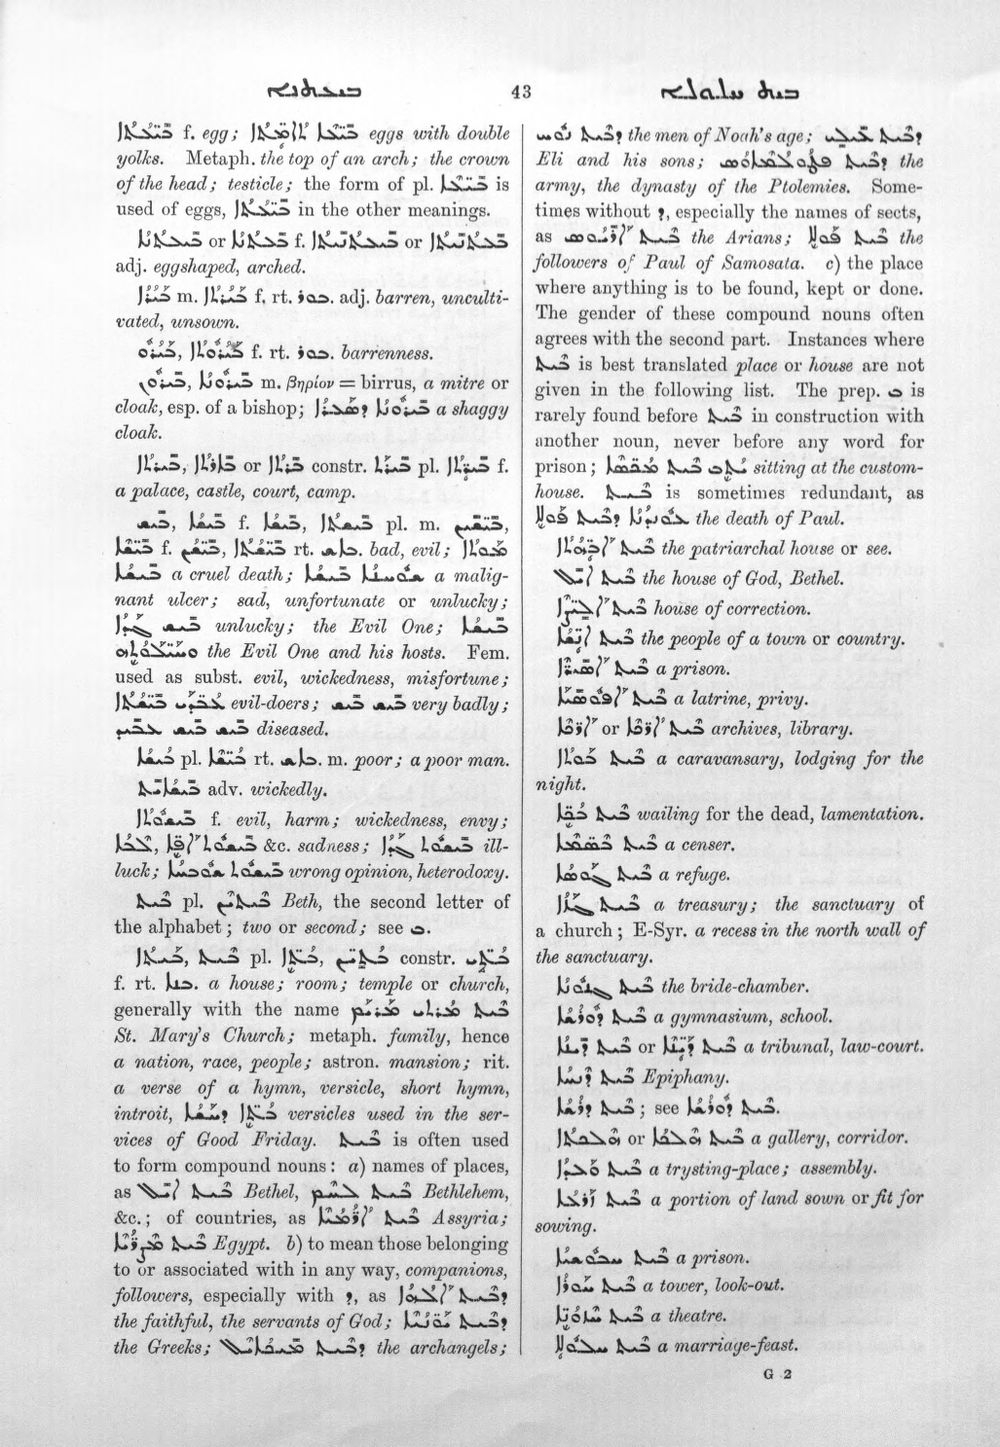 ܒܝܥܬܢܝܐ 43 ܒܝܬ ܚܠܘܠܐ
ܒܝܥܬܐ f. egg; ܒܝܥܐ ܬܐܡܬܐ eggs with double
yolks. Metaph. the top of an arch; the crown
of the head; testicle; the form of pl. ܒܝܥܐ is
used of eggs, ܒܝܥܬܐ in the other meanings.
ܒܝܥܬܢܐ or ܒܥܬܢܐ f. ܒܝܥܬܢܝܬܐ or ܒܥܬܢܝܬܐ
adj. eggshaped, arched.
ܒܝܪܐ m. ܒܝܪܬܐ f. rt. ܒܘܪ. adj. barren, unculti-
vated, unsown.
ܒܝܪܘ, ܒܝܪܘܬܐ f. rt. ܒܘܪ. barrenness.
ܒܝܪܘܢ, ܒܝܪܘܢܐ m. βηρίον = birrus, a mitre or
cloak, esp. of a bishop; ܒܝܪܘܢܐ ܕܣܥܪܐ a shaggy
cloak.
ܒܝܪܬܐ, ܒܐܪܬܐ or ܒܪܬܐ constr. ܒܝܪܬ pl. ܒܝܪܬܐ f.
a palace, castle, court, camp.
ܒܝܫ, ܒܝܫܐ f. ܒܝܫܐ, ܒܝܫܬܐ pl. m. ܒܝܫܝܢ,
ܒܝܫܐ f. ܒܝܫܢ, ܒܝܫܬܐ rt. ܒܐܫ. bad, evil; ܡܘܬܐ
ܒܝܫܐ a cruel death; ܫܘܚܢܐ ܒܝܫܐ a malig-
nant ulcer; sad, unfortunate or unlucky;
ܒܝܫ ܓܕܐ unlucky; the Evil One; ܒܝܫܐ
ܘܚܝܠܘܬܗ the Evil One and his hosts. Fem.
used as subst. evil, wickedness, misfortune;
ܥܒܕܝ ܒܝܫܬܐ evil-doers; ܒܝܫ ܒܝܫ very badly;
ܒܝܫ ܒܝܫ diseased.
ܒܝܫܐ pl. ܒܝܫܐ rt. ܒܐܫ. m. poor; a poor man.
ܒܝܫܐܝܬ adv. wickedly.
ܒܝܫܘܬܐ f. evil, harm; wickedness, envy;
ܠܒܐ, ܒܝܫܘܬ ܐܦܐ &c. sadness; ܒܝܫܘܬ ܓܕܐ ill-
luck; ܒܝܫܘܬ ܫܘܒܚܐ wrong opinion, heterodoxy.
ܒܝܬ pl. ܒܝܬܝܢ Beth, the second letter of
the alphabet; two or second; see ܒ.
ܒܝܬܐ, ܒܝܬ pl. ܒܬܐ, ܒܬܝܢ constr. ܒܬܝ
f. rt. ܒܢܐ. a house; room; temple or church,
generally with the name ܒܝܬ ܡܪܬܝ ܡܪܝܡ
St. Mary's Church; metaph. family, hence
a nation, race, people; astron. mansion; rit.
a verse of a hymn, versicle, short hymn,
introit, ܒܬܐ ܕܚܫܐ versicles used in the ser-
vices of Good Friday. ܒܝܬ is often used
to form compound nouns: a) names of places,
as ܒܝܬ ܐܝܠ Bethel, ܒܝܬ ܠܚܡ Bethlehem,
&c.; of countries, as ܒܝܬ ܐܪܡܝܐ Assyria;
ܒܝܬ ܡܨܪܝܐ Egypt. b) to mean those belonging
to or associated with in any way, companions,
followers, especially with ܕ, as ܕܒܝܬ ܐܠܗܐ
the faithful, the servants of God; ܕܒܝܬ ܝܘܢܝܐ
the Greeks; ܕܒܝܬ ܡܝܟܐܝܠ the archangels;
ܕܒܝܬ ܢܘܚ the men of Noah's age; ܕܒܝܬ ܥܠܝ
Eli and his sons; ܕܒܝܬ ܦܛܘܠܡܐܘܣ the
army, the dynasty of the Ptolemies. Some-
times without ܕ, especially the names of sects,
as ܒܝܬ ܐܪܝܘܣ the Arians; ܒܝܬ ܦܘܠܐ the
followers of Paul of Samosata. c) the place
where anything is to be found, kept or done.
The gender of these compound nouns often
agrees with the second part. Instances where
ܒܝܬ is best translated place or house are not
given in the following list. The prep. ܒ is
rarely found before ܒܝܬ in construction with
another noun, never before any word for
prison; ܝܬܒ ܒܝܬ ܡܟܣܐ sitting at the custom-
house. ܒܝܬ is sometimes redundant, as
ܥܘܢܕܢܐ ܕܒܝܬ ܦܘܠܐ the death of Paul.
ܒܝܬ ܐܒܗܬܐ the patriarchal house or see.
ܒܝܬ ܐܝܠ the house of God, Bethel.
ܒܝܬ house of correction.
ܒܝܬ ܐܢܫܐ the people of a town or country.
ܒܝܬ ܐܣܝܪܐ a prison.
ܒܝܬ a latrine, privy.
ܒܝܬ ܐܪܟܐ or archives, library.
ܒܝܬ ܒܘܬܐ a caravansary, lodging for the
night.
ܒܝܬ ܒܟܝܐ wailing for the dead, lamentation.
ܒܝܬ ܒܣܡܐ a censer.
ܒܝܬ ܓܘܣܐ a refuge.
ܒܝܬ ܓܙܐ a treasury; the sanctuary of
a church; E-Syr. a recess in the north wall of
the sanctuary.
ܒܝܬ ܓܢܘܢܐ the bride-chamber.
ܒܝܬ ܕܘܪܫܐ a gymnasium, school.
ܒܝܬ ܕܝܢܐ or ܒܝܬ ܕܝܢܐ a tribunal, law-court.
ܒܝܬ ܕܢܚܐ Epiphany.
ܒܝܬ ܕܪܫܐ; see ܒܝܬ ܕܘܪܫܐ.
ܒܝܬ ܗܠܟܐ or ܗܠܟܬܐ a gallery, corridor.
ܒܝܬ ܘܥܕܐ a trysting-place; assembly.
ܒܝܬ ܙܪܥܐ a portion of land sown or fit for
sowing.
ܒܝܬ ܚܒܘܫܝܐ a prison.
ܒܝܬ ܚܘܪܐ a tower, look-out.
ܒܝܬ ܚܙܘܢܐ a theatre.
ܒܝܬ ܚܠܘܠܐ a marriage-feast.
G 2